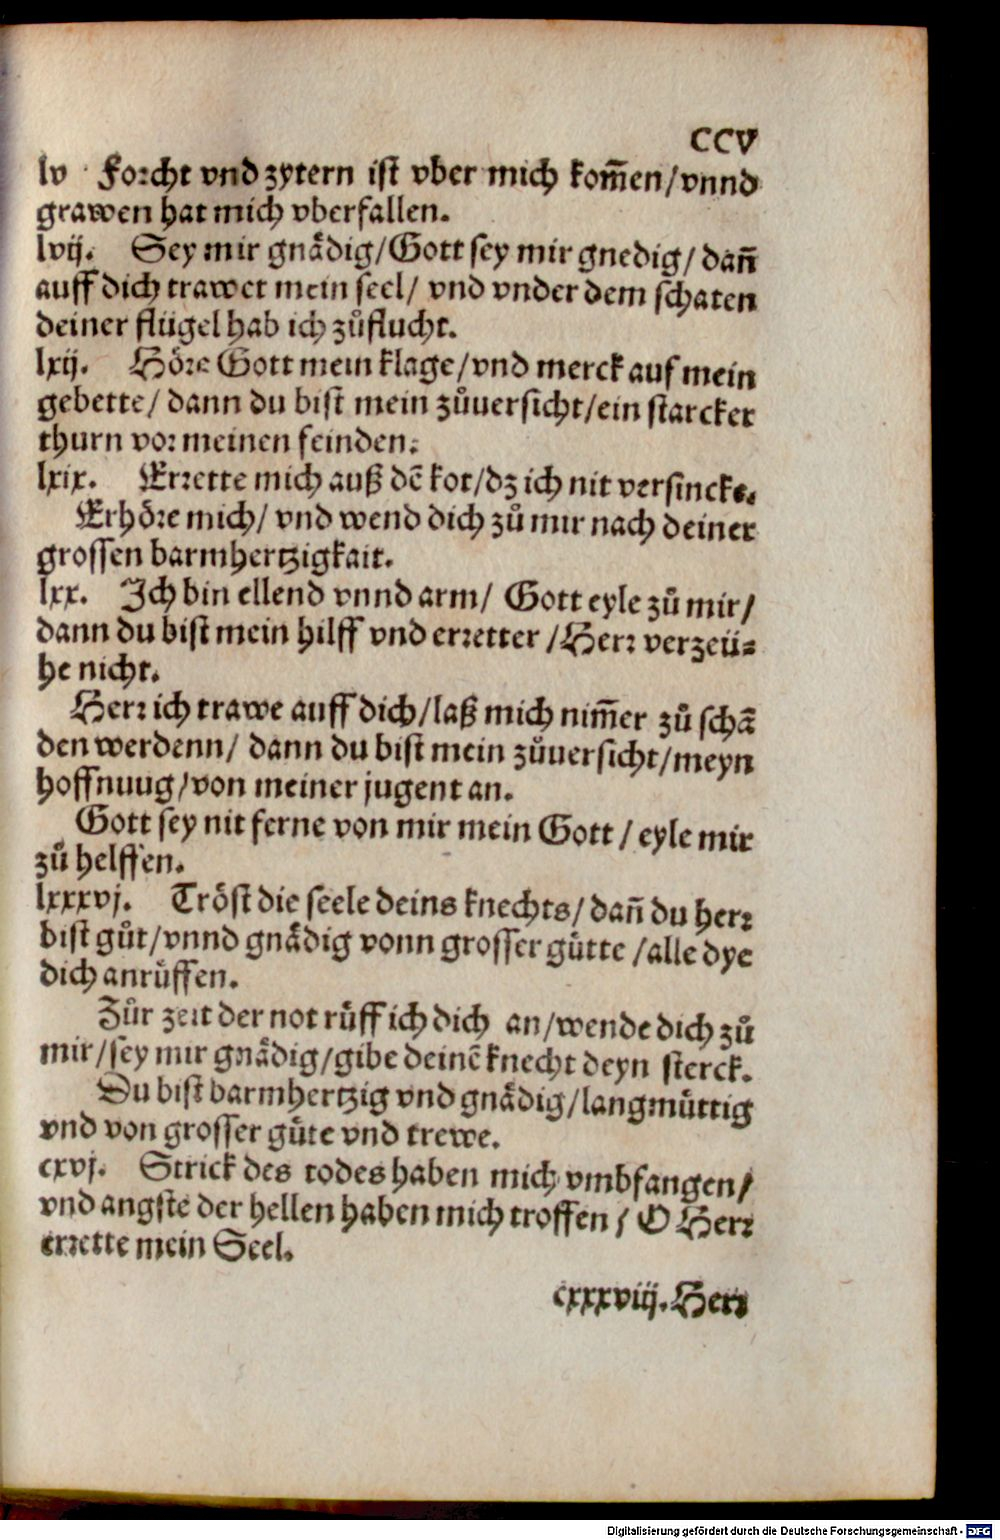 CCV
lv Forcht vnd zytern ist vber mich kom̃en/vnnd
grawen hat mich vberfallen.
lvij. Sey mir gnådig/Gott sey mir gnedig/dañ
auff dich trawet mein seel/ vnd vnder dem schaten
deiner flügel hab ich zůflucht.
lxij. Hőre Gott mein klage/vnd merck auf mein
gebette/ dann du bist mein zůuersicht/ein starcker
thurn vor meinen feinden.
lxix. Errette mich auß dẽ kot/dz ich nit versincke.
Erhőre mich/ vnd wend dich zů mir nach deiner
grossen barmhertzigkait.
lxx. Ich bin ellend vnnd arm/ Gott eyle zů mir/
dann du bist mein hilff vnd erretter/Herr verzeü-
he nicht.
Herr ich trawe auff dich/laß mich nim̃er zů schã
den werdenn/ dann du bist mein zůuersicht/meyn
hoffnuug/von meiner jugent an.
Gott sey nit ferne von mir mein Gott/ eyle mir
zů helffen.
lxxxvj. Tröst die seele deins knechts/ dañ du herr
bist gůt/vnnd gnådig vonn grosser gütte/alle dye
dich anrůffen.
Zůr zeit der not růff ich dich an/wende dich zů
mir/sey mir gnådig/gibe deinẽ knecht deyn sterck.
Du bist barmhertzig vnd gnådig/langmüttig
vnd von grosser güte vnd trewe.
cxvj. Strick des todes haben mich vmbfangen/
vnd angste der hellen haben mich troffen/ O Herr
errette mein Seel.
cxxxviij. Herr
Digitalisierung gefördert durch die Deutsche Forschungsgemeinschaft - DFG